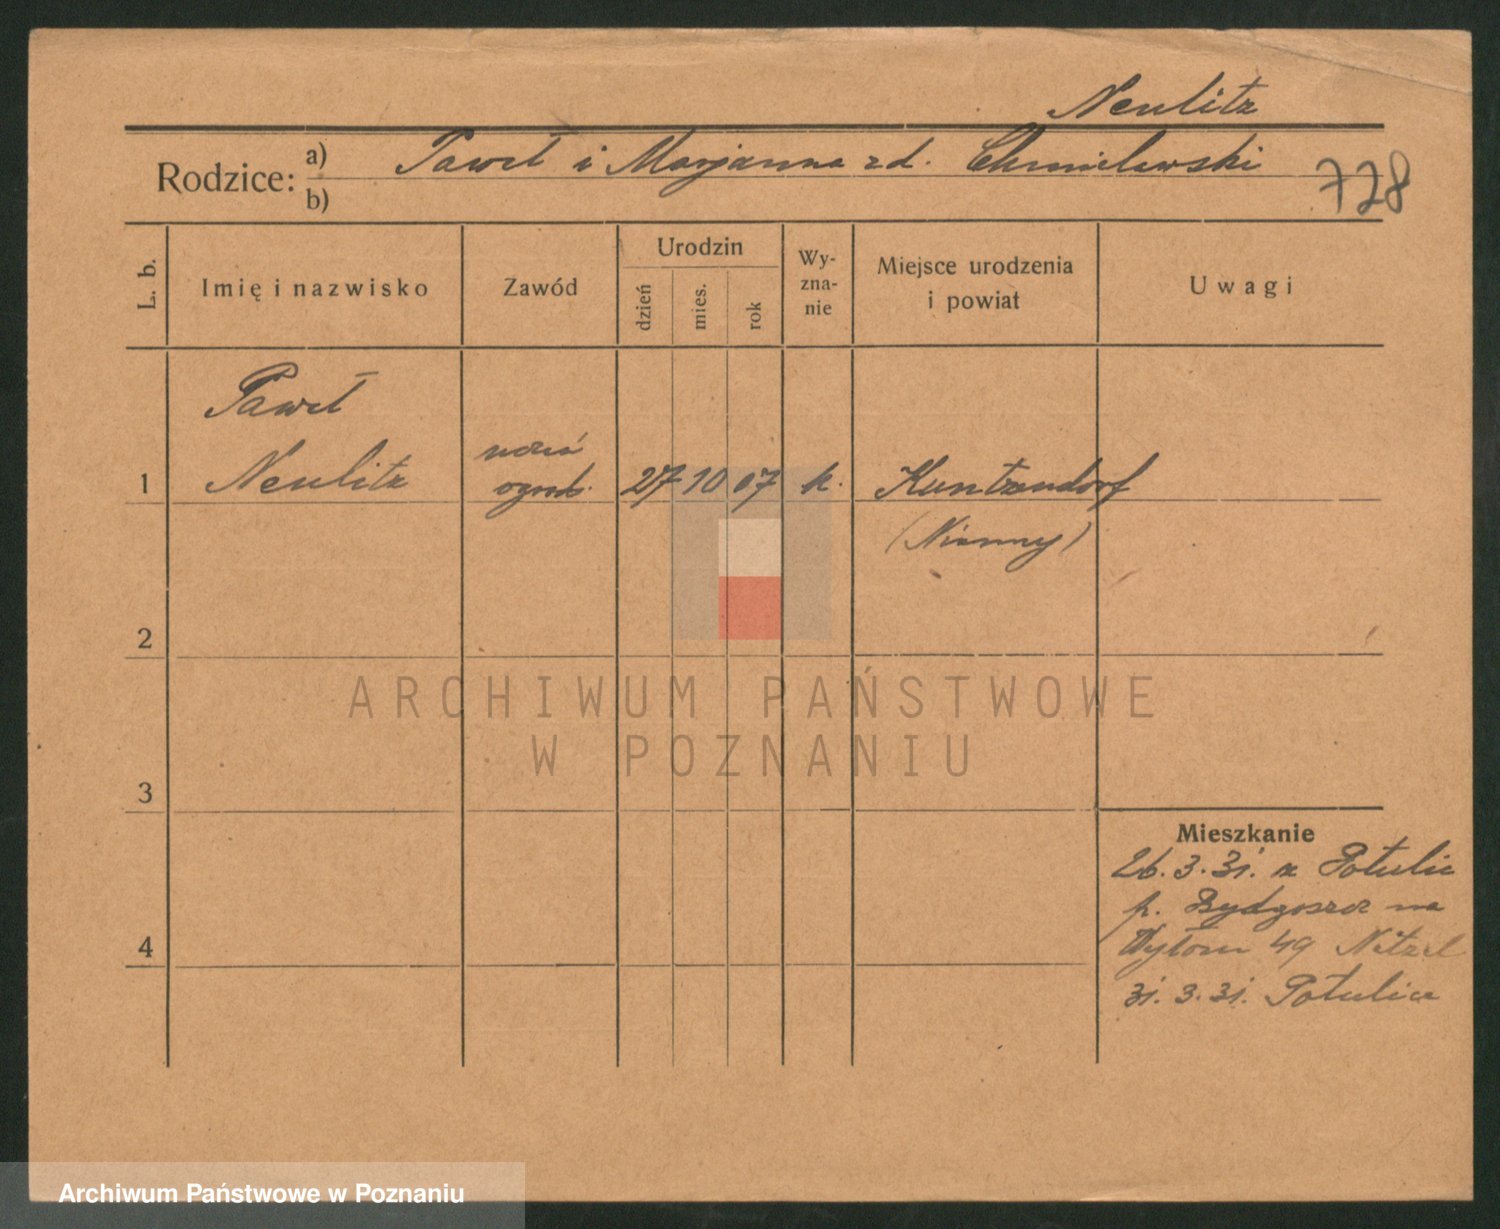 Neulitz
Rodzice: a) Paweł i Marjanna zd. Chmielewski
b)
728
L. b.
Imię i nazwisko
Zawód
Urodzin
dzień
mies.
rok
Wy-
zna-
nie
Miejsce urodzenia
i powiat
Uwagi
Paweł
1 Neulitz
ogrod. 27 10 07 k. Kuntzendorf
(Niemcy)
2
3
4
ARCHIWUM PAŃSTWOWE
W POZNANIU
Mieszkanie
26. 3. 31. z Potulic
p. Bydgoszcz na
Wyłom 49
31. 3. 31. Potulice
Archiwum Państwowe w Poznaniu